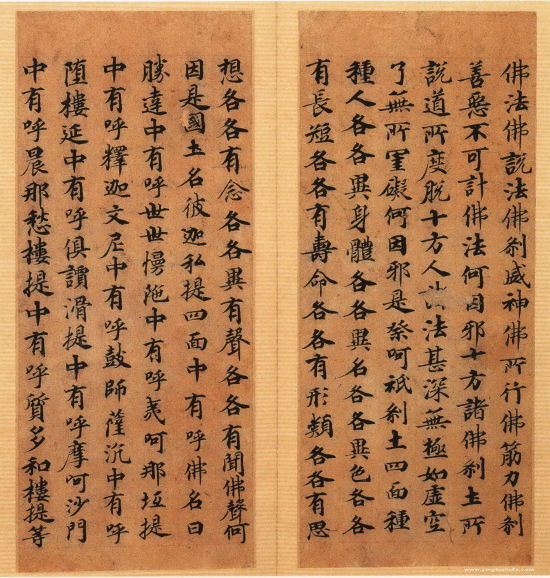 佛法佛說法佛剎威神佛所行佛筋力佛剎
善惡不可計佛法何因邪十方諸佛剎土所
說道所度脫十方人說法甚深無極如虛空
了無所罣礙何因邪是桼呵祇剎土四面種
種人各各異身體各各異名各各異色各各
有長短各各有壽命各各有形類各各有思
想各各有念各各異有聲各各有聞佛聲何
因是國土名彼迦私提四面中有呼佛名曰
勝達中有呼世世慢陁中有呼夷呵那坘提
中有呼釋迦文尼中有呼鼓師薩沉中有呼
墮樓延中有呼俱讀滑提中有呼摩呵沙門
中有呼晨那愁樓提中有呼質多和樓提等